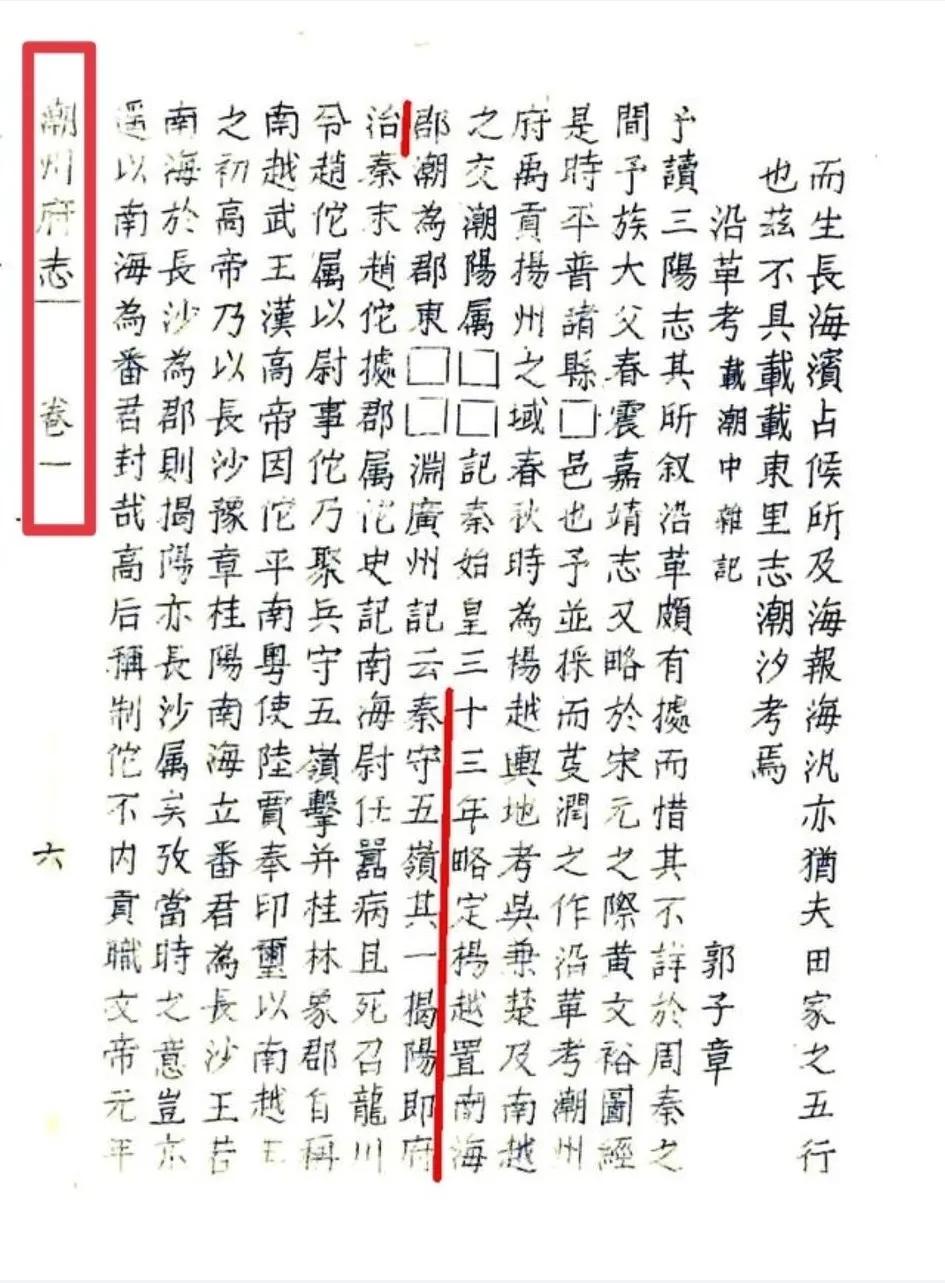 而生長海濱占候所及海報海汎亦猶夫田家之五行
也茲不具載載東里志潮汐考焉
沿革考載潮中雜記 郭子章
予讀三陽志其所叙沿革頗有據而惜其不詳於周秦之
間予族大父春震嘉靖志又略於宋元之際黄文裕圖經
是時平普諸縣□邑也予並採而芟潤之作沿革考潮州
府禹貢揚州之域春秋時為楊越輿地考吳兼楚及南越
之交潮陽属□□記秦始皇三十三年略定楊越置南海
郡潮為郡東□□淵廣州記云秦守五嶺其一揭陽即府
治秦末趙佗據郡属佗史記南海尉任囂病且死召龍川
令趙佗属以尉事佗乃聚兵守五嶺擊并桂林象郡自稱
南越武王漢高帝因佗平南粤使陸賈奉印璽以南越王
之初高帝乃以長沙豫章桂陽南海立番君為長沙王昔
南海於長沙為郡則揭陽亦長沙属矣攷當時之意豈亦
遥以南海為番君封哉高后稱制佗不内貢職文帝元年
潮州府志 卷一
六